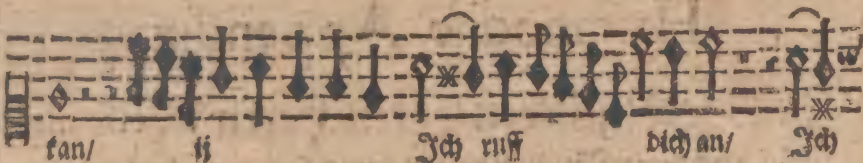 kan/ ij Ich ruff dich an/ Ich